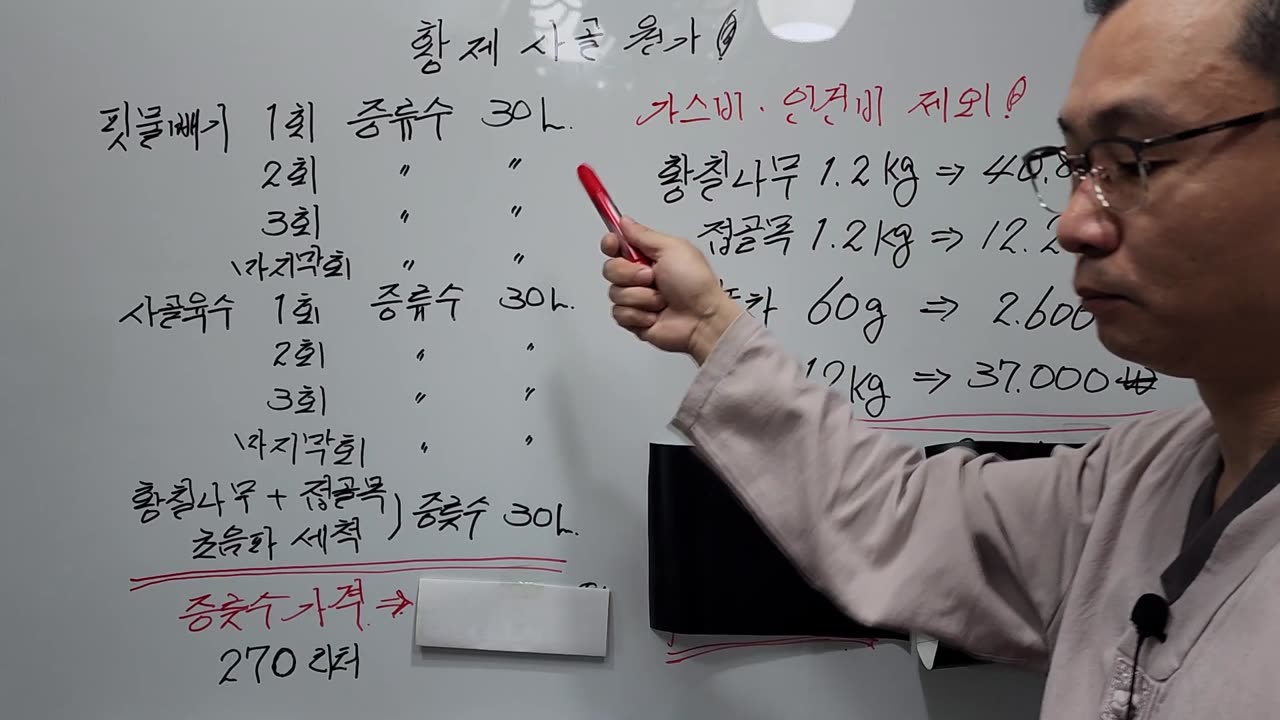 황제 사골 원가!
핏물빼기 1회 증류수 30L.
2회 〃 〃
3회 〃 〃
마지막회 〃 〃
사골육수 1회 증류수 30L.
2회 〃 〃
3회 〃 〃
마지막회 〃 〃
황칠나무 + 접골목
초음파 세척 ) 증륫수 30L.
증륫수 가격 ⇒
270 리터
가스비·인건비 제외!
황칠나무 1.2kg ⇒
접골목 1.2kg ⇒
60g ⇒ 2.600
12kg ⇒ 37.000 ₩